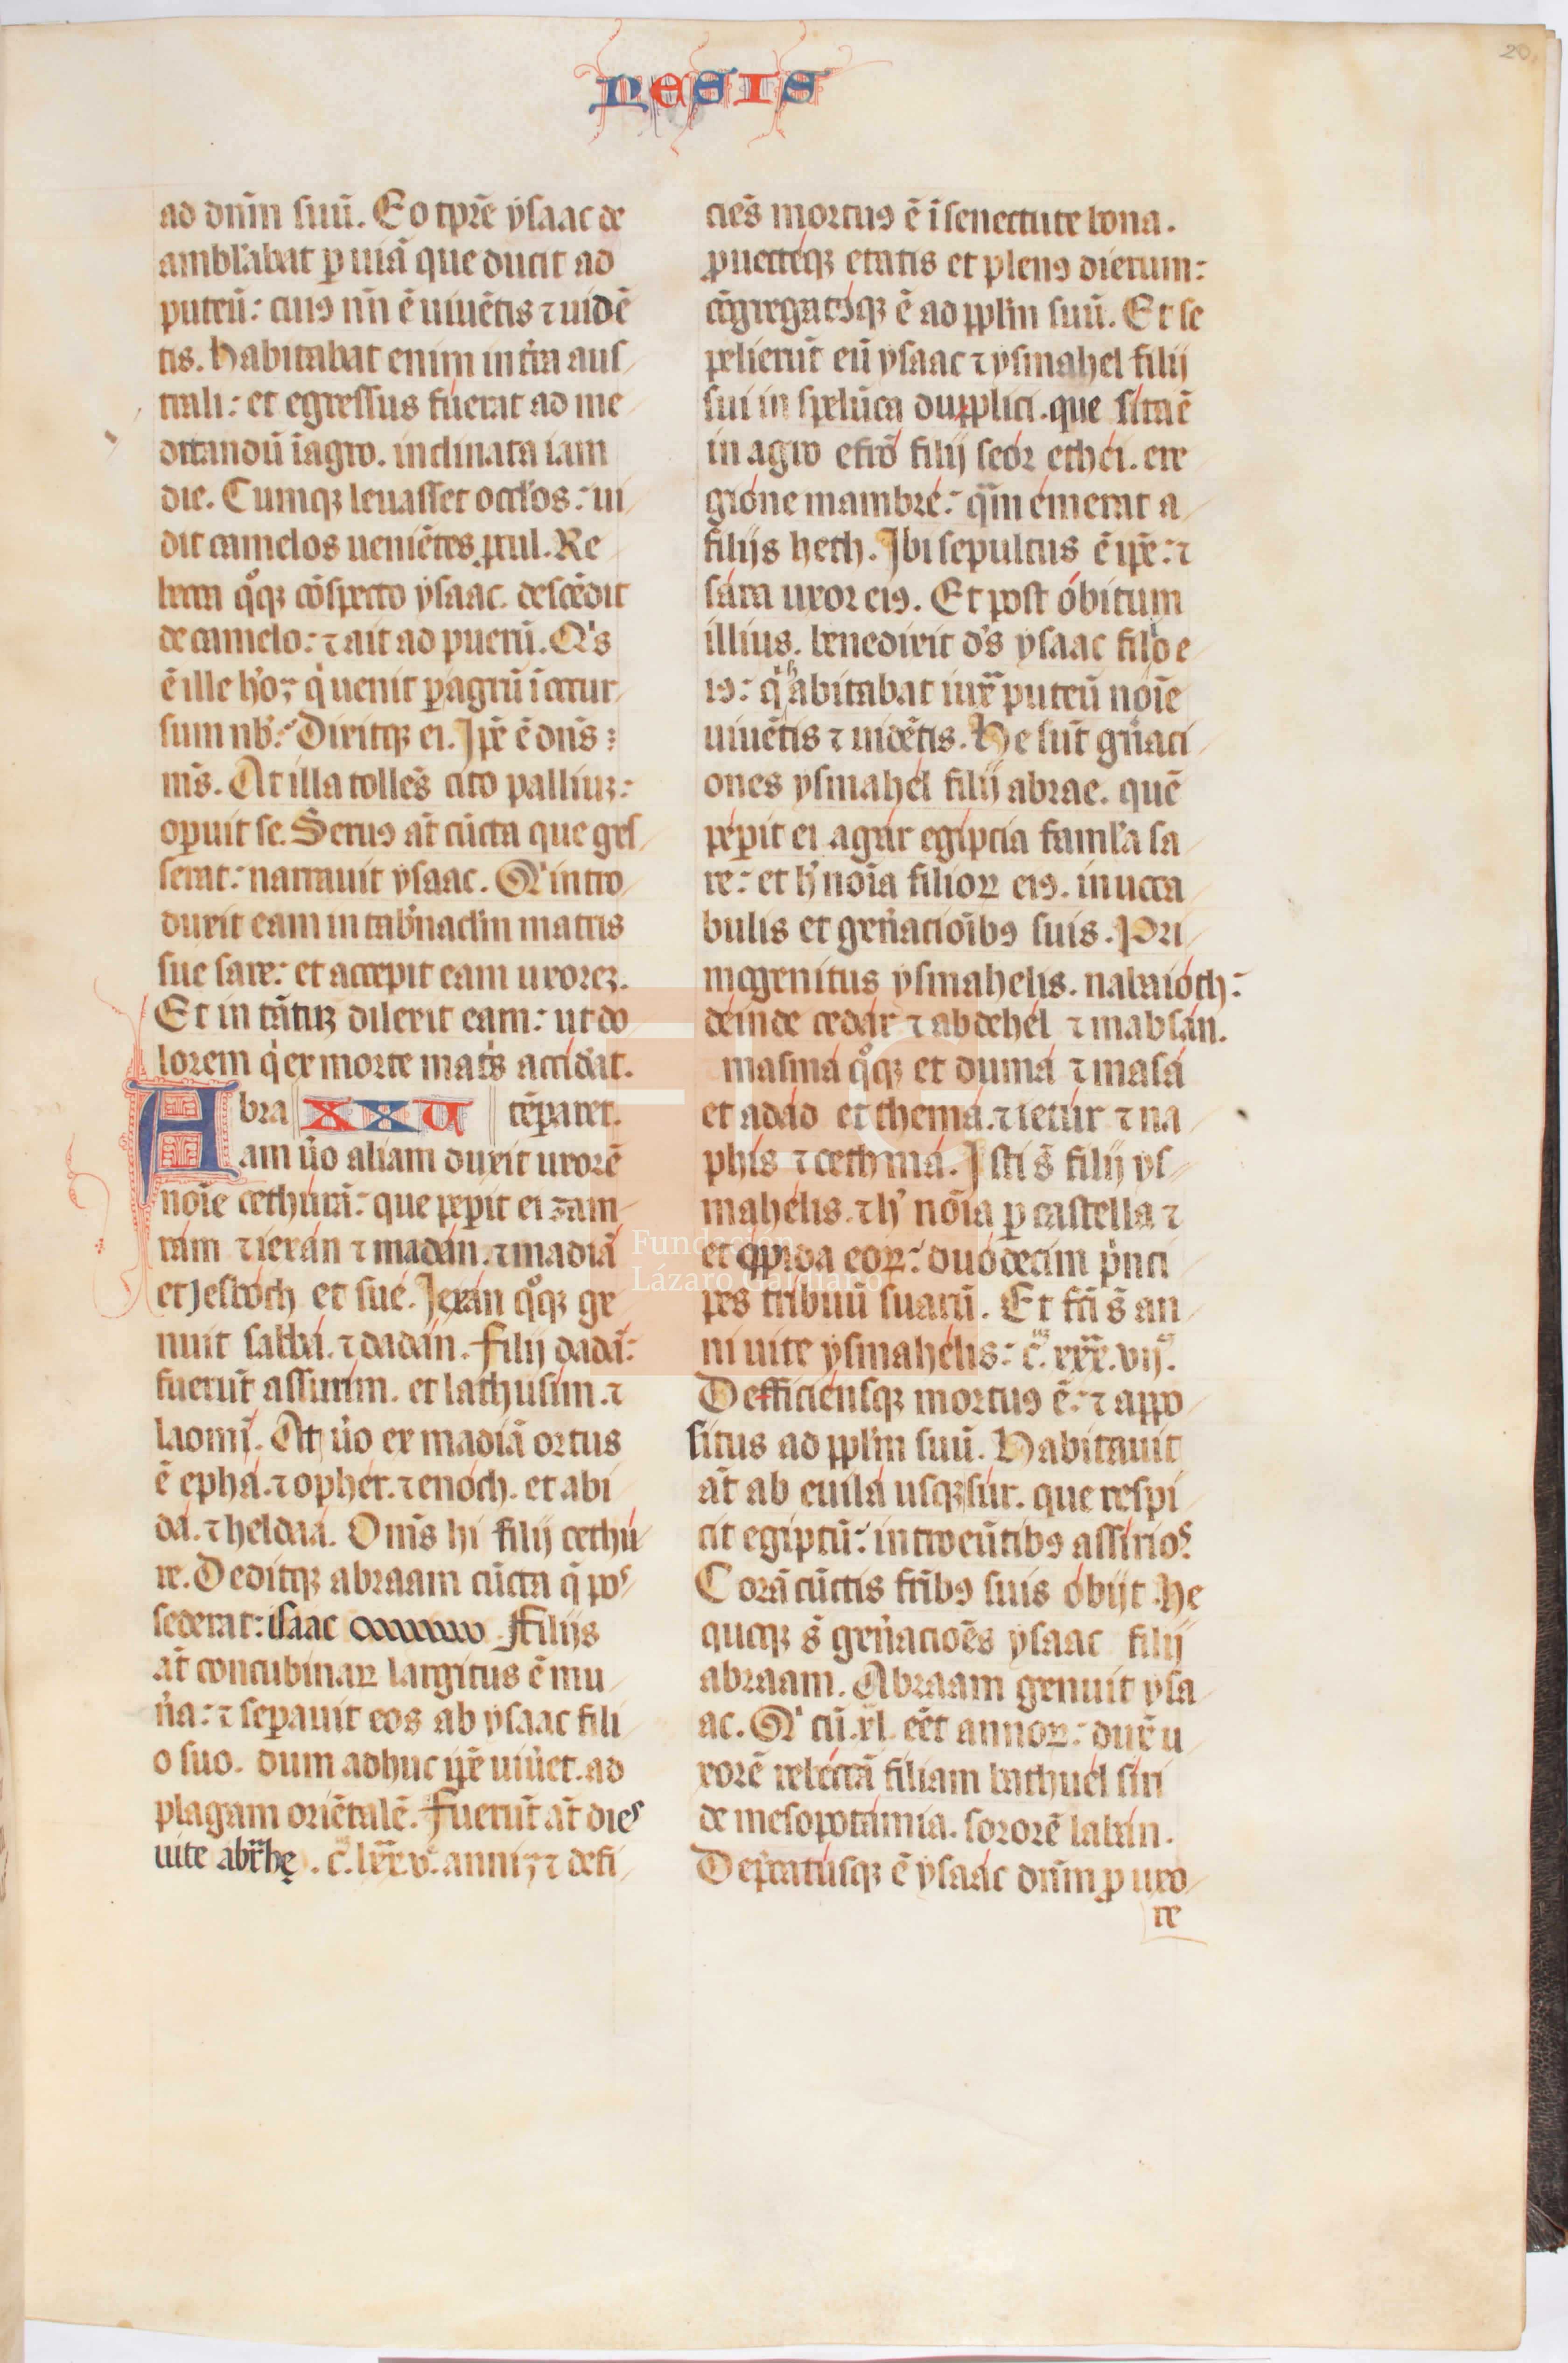 20
NESIS
ad dnm̄ suū. Eo tpr̄e ysaac de
ambl'abat ꝑ uiā que ducit ad
puteū: cuiꝰ nn̄ ē uiuētis ⁊ uidē
tis. habitabat enim in tr̄a aus
trali: et egressus fuerat ad me
ditandū ī agro. inclinata iam
die. Cumqꝫ leuasset occl'os: ui
dit camelos ueniētes ꝓcul. Re
becca qͦqꝫ cōspecto ysaac. descēdit
de camelo: ⁊ ait ad puerū. Qis
ē ille ho; qi uenit ꝑ agrū ī occur
sum nb'. Dixitqꝫ ei. Ipē ē dn̄s
ms̄. At illa tollēs cito palliuꝫ:
oꝑuit se. Seruꝰ at̄ cūcta que ges
serat: narrauit ysaac. Qi intro
duxit eam in tab'naclm̄ matris
sue sare: et accepit eam uxoreꝫ.
Et in tātuꝫ dilexit eam: ut do
lorem qi ex morte matis accid'at.
Abra XXV tēꝑaret.
am ùo aliam duxit uxorē
noīe cethurā: que peꝑit ei zam
ram ⁊ iexan ⁊ madan. ⁊ madiā
et Jesboch et sue. Jexan qͦqꝫ ge
nuit sabba. ⁊ dadan. filij dadā:
fuerūt assurim. et lathusim. ⁊
laomī. At ùo ex madiā ortus
ē epha. ⁊ opher. ⁊ enoch. et abi
da. ⁊ heldaa. Om̄s hi filij cethu
re. Deditqꝫ abraam cūcta q̄ pos
sederat: isaac. Filijs
at̄ concubinaꝝ largitus ē mu
n'a: ⁊ seꝑauit eos ab ysaac fili
o suo. dum adhuc ip̄e uiu'et. ad
plagam oriētalē. fuerūt at̄ dies
uite abr̄hę. c. lxxv. anni; ⁊ defi
ciēs mortuꝰ ē ī senectute bona.
ꝓuecteqꝫ etatis et plenꝰ dierum:
cōgregatꝰqꝫ ē ad pplm̄ suū. Et se
pelierūt eū ysaac ⁊ ysmahel filij
sui in spelūca dupplici. que sita ē
in agro efrō filij seor ethei. e re
gione mambre: qm̄ emerat a
filijs heth. Ibi sepultus ē ip̄e: ⁊
sara uxor eiꝰ. Et post obitum
illius. benedixit ds̄ ysaac filio e
iꝰ: qi habitabat iux̄ puteū noīe
uiuētis ⁊ uidētis. He sūt gn̄aci
ones ysmahel filij abrae. quē
peꝑit ei agar egiptia faml'a sa
re: et h' noīa filioꝝ eiꝰ. in uoca
bulis et gen̄acioībꝰ suis. Pri
mogenitus ysmahelis. nabaioth:
deinde cedar ⁊ abdehel ⁊ mabsan.
masma qͦqꝫ et duma ⁊ masa
et adad et thema. ⁊ ietur ⁊ na
phis ⁊ cethma. Isti s̄ filij ys
mahelis. ⁊ h' noīa ꝑ castella ⁊
et oppida eoꝝ: duodecim p̄nci
pes tribuū suarū. Et fti s̄ an
ni uite ysmahelis: c. xxx. vij.
Defficiensqꝫ mortuꝰ ē: ⁊ appo
situs ad pplm̄ suū. Habitauit
at̄ ab euila usqꝫ sur. que respi
cit egiptū: introeūtibꝰ assirios
Corā cūctis fr̄ibꝰ suis obijt. He
quoqꝫ s̄ gen̄acioēs ysaac filij
abraam. Abraam genuit ysa
ac. Qi cū. xl. eēt annoꝝ: dux̄ u
xorē rebeccā filiam bathuel siri
de mesopotamia. sororē laban.
Dep̄catusqꝫ ē ysaac dnm̄ ꝓ uxo
re
Fundación
Lázaro Galdiano